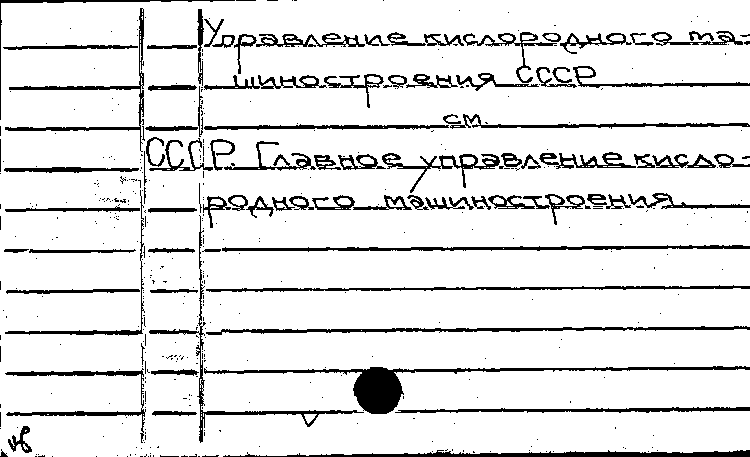 Управление кислородного ма-
шиностроения СССР
см.
СССР. Главное управление кисло-
родного машиностроения.